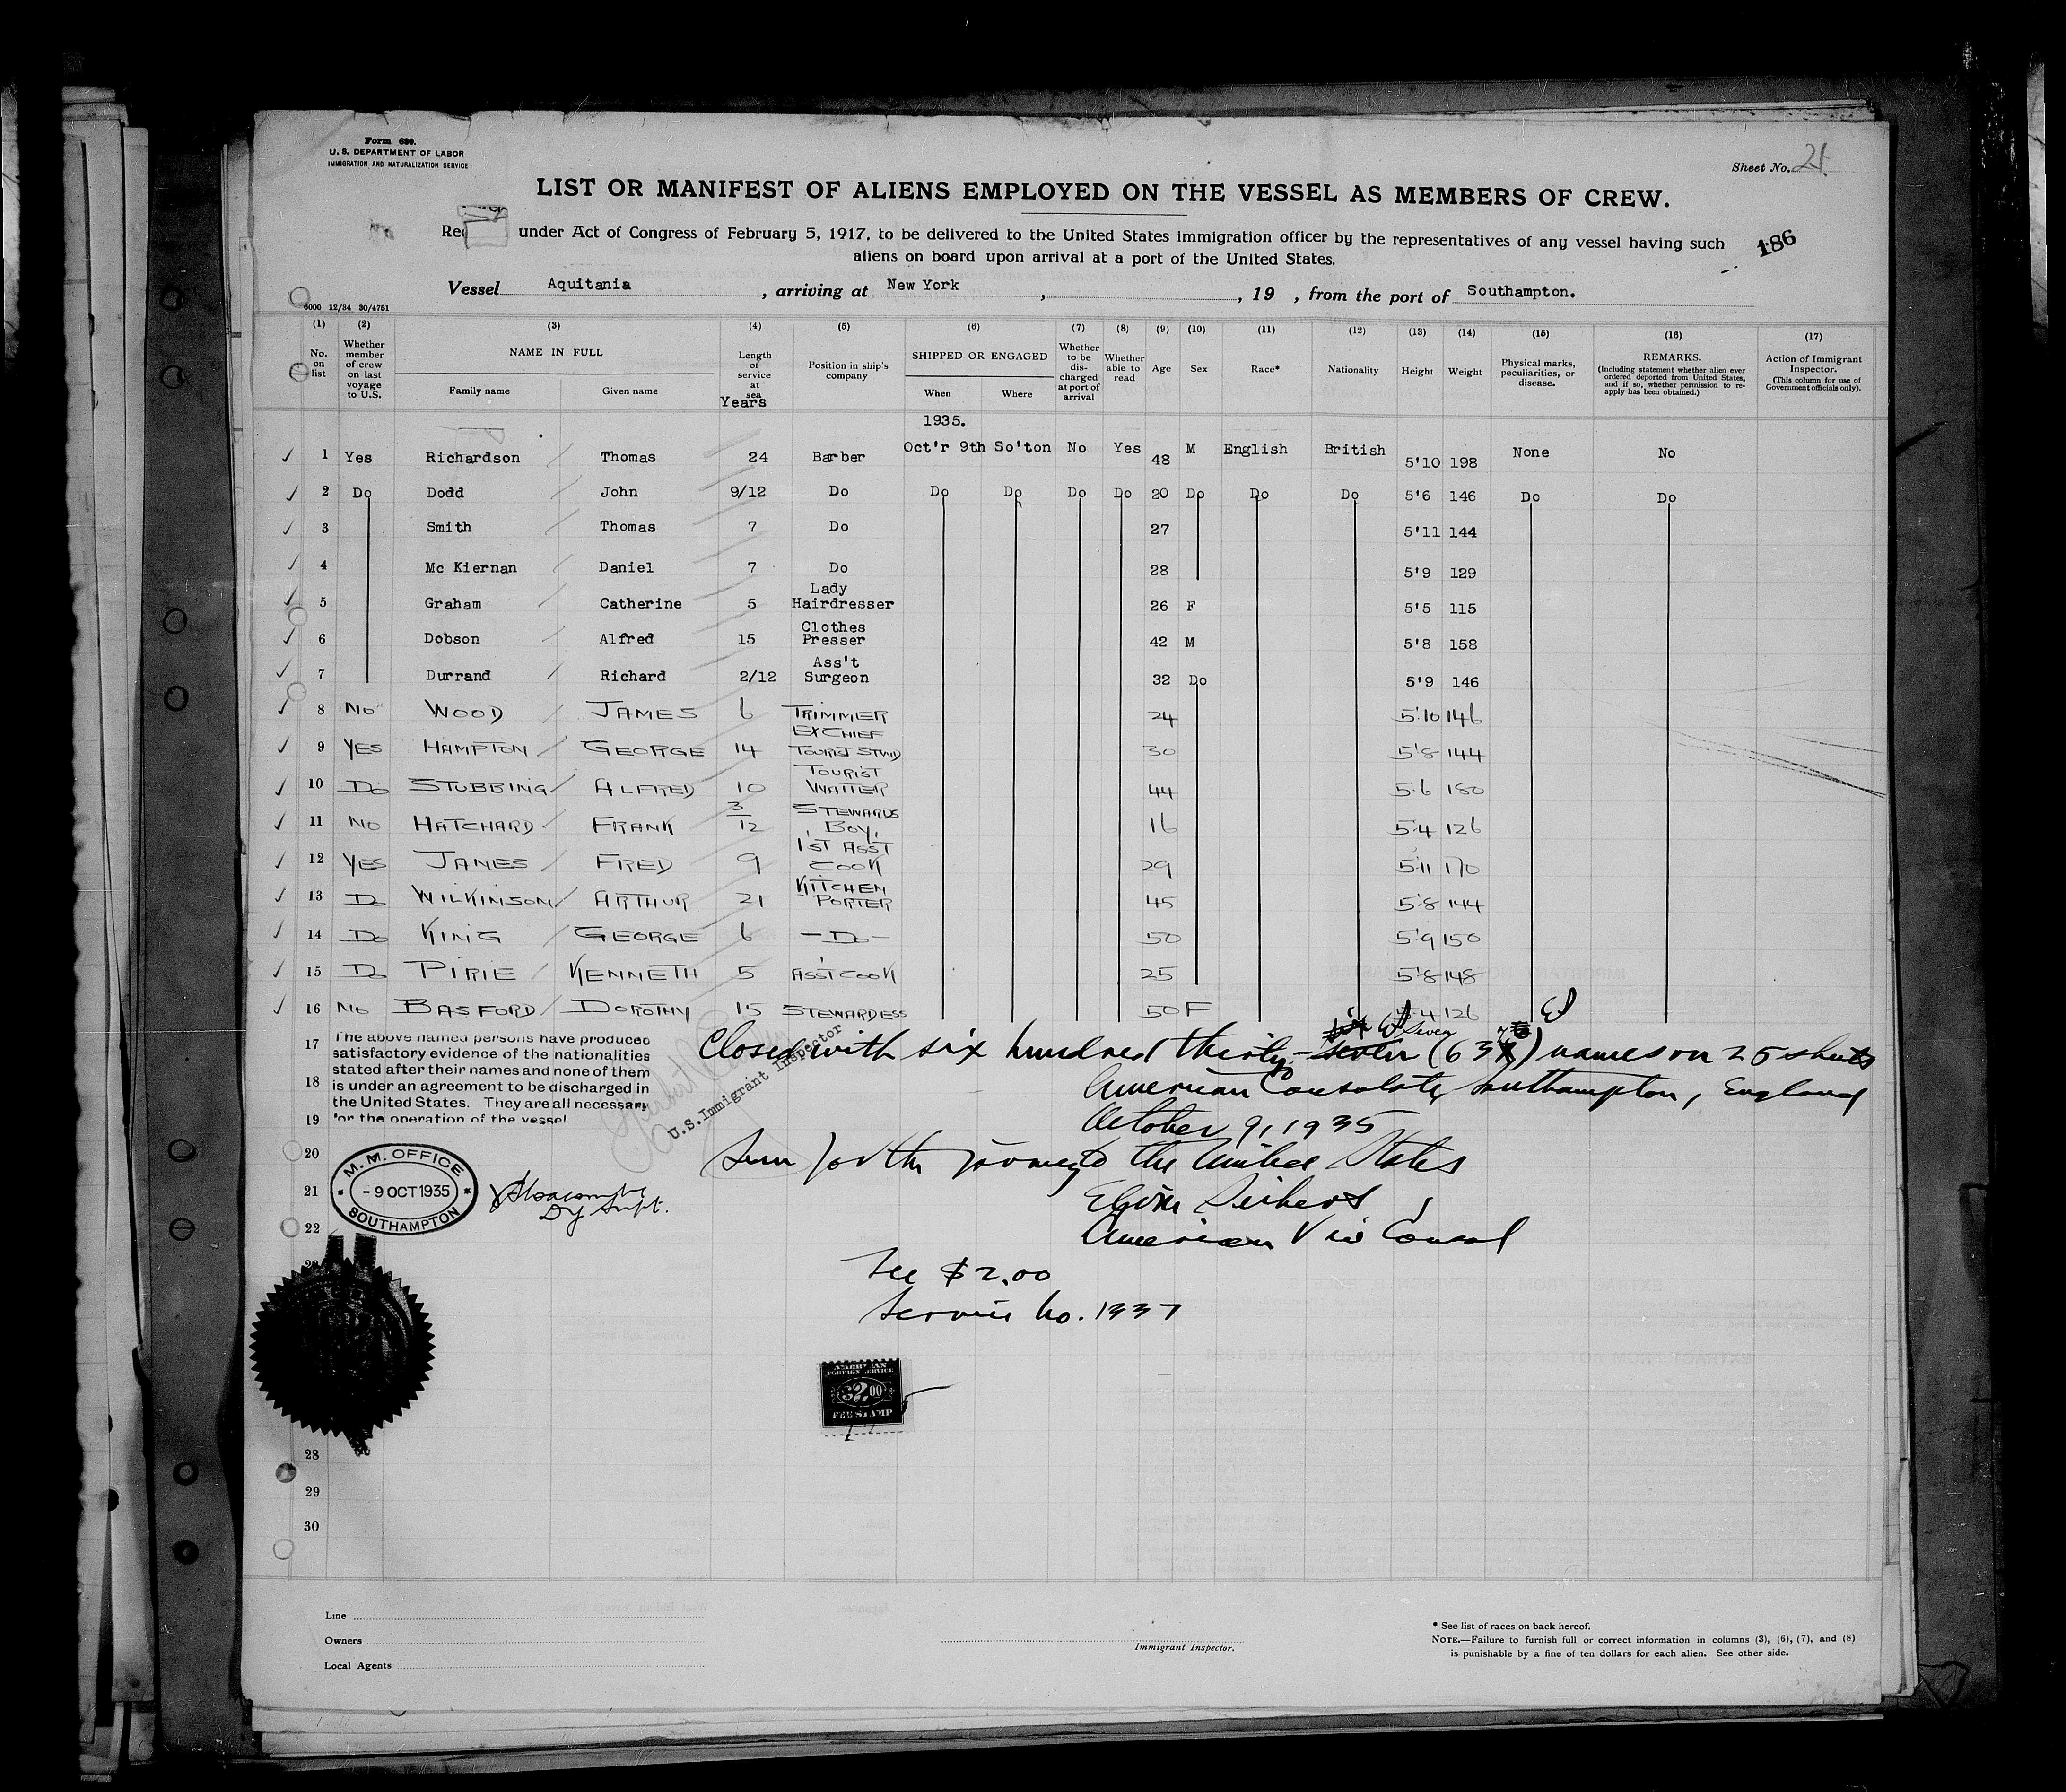 Form 680.
U. S. DEPARTMENT OF LABOR
IMMIGRATION AND NATURALIZATION SERVICE
Sheet No.
LIST OR MANIFEST OF ALIENS EMPLOYED ON THE VESSEL AS MEMBERS OF CREW.
under Act of Congress of February 5, 1917, to be delivered to the United States immigration officer by the representatives of any vessel having such
186
aliens on board upon arrival at a port of the United States.
Vessel Aquitania, arriving at New York, , 19 , from the port of Southampton.
6000 12/34 30/4751
(1) (2) (3) (4) (5) (6) (7) (8) (9) (10) (11) (12) (13) (14) (15) (16) (17)
No. on list
Whether member of crew on last voyage to U.S.
NAME IN FULL
Family name
Given name
Length of service at sea
Years
Position in ship's company
SHIPPED OR ENGAGED
When
Where
Whether to be discharged at port of arrival
Whether able to read
Age
Sex
Race*
Nationality
Height
Weight
Physical marks, peculiarities, or disease.
REMARKS.
(Including statement whether alien ever ordered deported from United States, and if so, whether permission to reapply has been obtained.)
Action of Immigrant Inspector.
(This column for use of Government officials only).
1935.
1 Yes Richardson Thomas 24 Barber Oct'r 9th So'ton No Yes 48 M English British 5'10 198 None No
2 Do Dodd John 9/12 Do Do Do Do Do 20 Do Do Do 5'6 146 Do Do
3 Smith Thomas 7 Do 27 5'11 144
4 Mc Kiernan Daniel 7 Do 28 5'9 129
5 Graham Catherine 5 Lady Hairdresser 26 F 5'5 115
6 Dobson Alfred 15 Clothes Presser 42 M 5'8 158
7 Durrand Richard 2/12 Ass't Surgeon 32 Do 5'9 146
8 No WOOD JAMES 6 TRIMMER 24 5'10 146
9 YES HAMPTON GEORGE 14 EX CHIEF TOURIST STWD 30 5'8 144
10 Do STUBBING ALFRED 10 TOURIST WAITER 44 5'6 180
11 No HATCHARD FRANK 3/12 STEWARDS BOY 16 5'4 126
12 YES JAMES FRED 9 1ST ASST COOK 29 5'11 170
13 Do WILKINSON ARTHUR 21 KITCHEN PORTER 45 5'8 144
14 Do KING GEORGE 6 - Do - 50 5'9 150
15 Do PIRIE KENNETH 5 ASST COOK 25 5'8 148
16 No BASFORD DOROTHY 15 STEWARDESS 50 F 5'4 126
17
18
19
20
21
22
28
29
30
The above named persons have produced
satisfactory evidence of the nationalities
stated after their names and none of them
is under an agreement to be discharged in
the United States. They are all necessary
for the operation of the vessel
U.S. Immigrant Inspector
Seven
Closed with six hundred thirty-seven (637) names on 25 sheets
American Consulate, Southampton, England
October 9, 1935
Seen for the journey to the United States
Elvin Seibert
American Vice Consul
Fee $2.00
Service No. 1337
M. M. OFFICE
- 9 OCT 1935
SOUTHAMPTON
Dy Supt.
AMERICAN
FOREIGN SERVICE
$2.00
FEE STAMP
Line
Owners
Local Agents
Immigrant Inspector.
* See list of races on back hereof.
NOTE.—Failure to furnish full or correct information in columns (3), (6), (7), and (8)
is punishable by a fine of ten dollars for each alien. See other side.